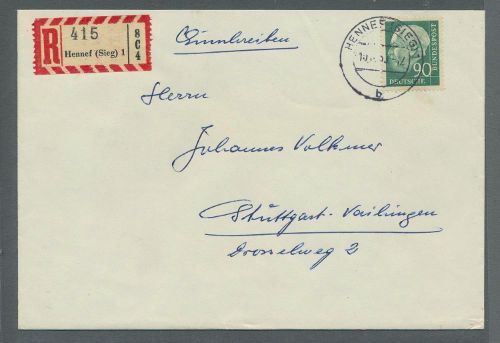 R 415 8C4
Hennef (Sieg) 1
Einschreiben
HENNEF (SIEG) 1
a
90
DEUTSCHE BUNDESPOST
Herrn
Johannes Volkmer
Stuttgart-Vaihingen
Drosselweg 2